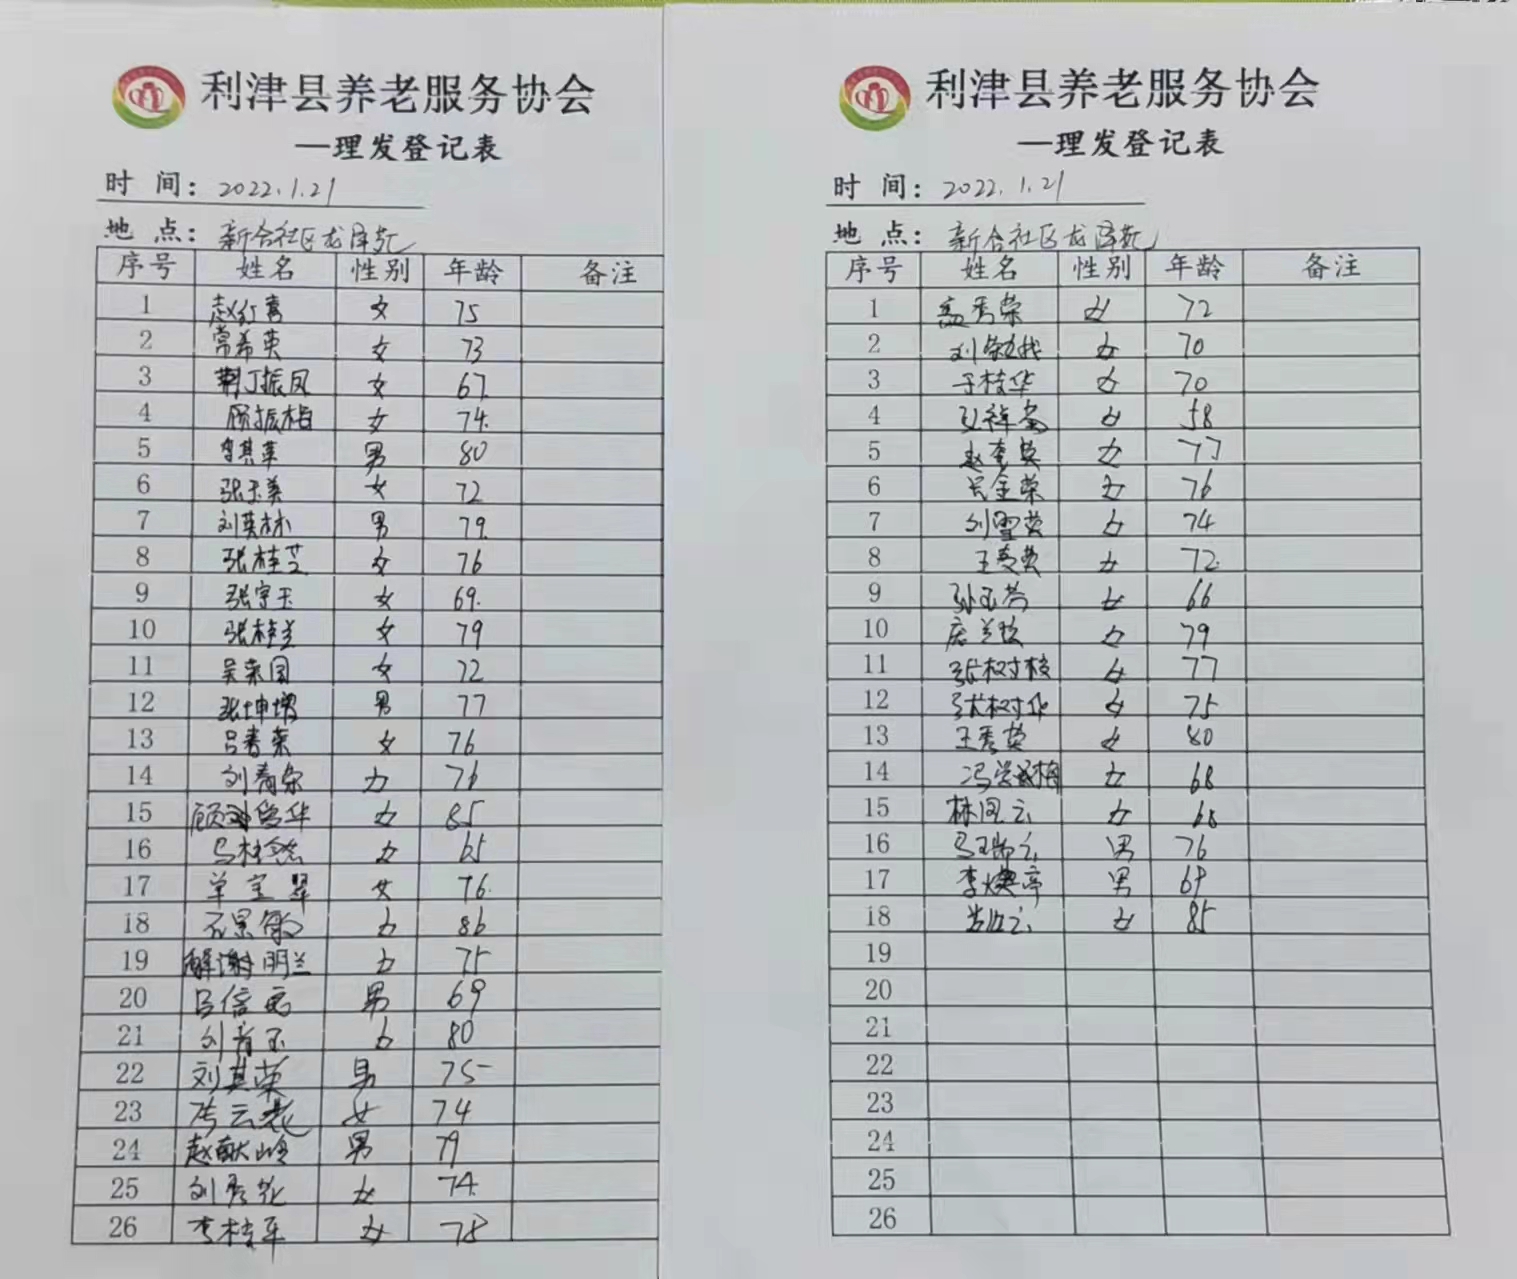 利津县养老服务协会
—理发登记表
时 间: 2022.1.21
地 点: 新合社区龙泽苑
序号 姓名 性别 年龄 备注
1 赵红喜 女 75
2 常希英 女 73
3 丁振凤 女 67
4 顾振梅 女 74
5 李其革 男 80
6 张玉美 女 72
7 刘英林 男 79
8 张桂芝 女 76
9 张守玉 女 69
10 张桂兰 女 79
11 吴荣国 女 72
12 张坤增 男 77
13 吕春荣 女 76
14 刘青荣 女 76
15 顾 华 女 85
16 马桂 女 65
17 单宝翠 女 76
18 石景 女 86
19 谢明兰 女 75
20 吕信 男 69
21 刘青玉 女 80
22 刘其荣 男 75
23 云 女 74
24 赵献岭 男 79
25 刘秀花 女 74
26 李桂 女 78
利津县养老服务协会
—理发登记表
时 间: 2022.1.21
地 点: 新合社区龙泽苑
序号 姓名 性别 年龄 备注
1 孟秀荣 女 72
2 刘 女 70
3 于桂华 女 70
4 祥 女 58
5 赵奎英 女 77
6 金荣 女 76
7 刘雪英 女 74
8 王英 女 72
9 孙玉芳 女 66
10 兰 女 79
11 张树枝 女 77
12 张树华 女 75
13 王秀英 女 80
14 冯 梅 女 68
15 林凤云 女 68
16 马瑞云 男 76
17 李焕亭 男 69
18 云 女 85
19
20
21
22
23
24
25
26